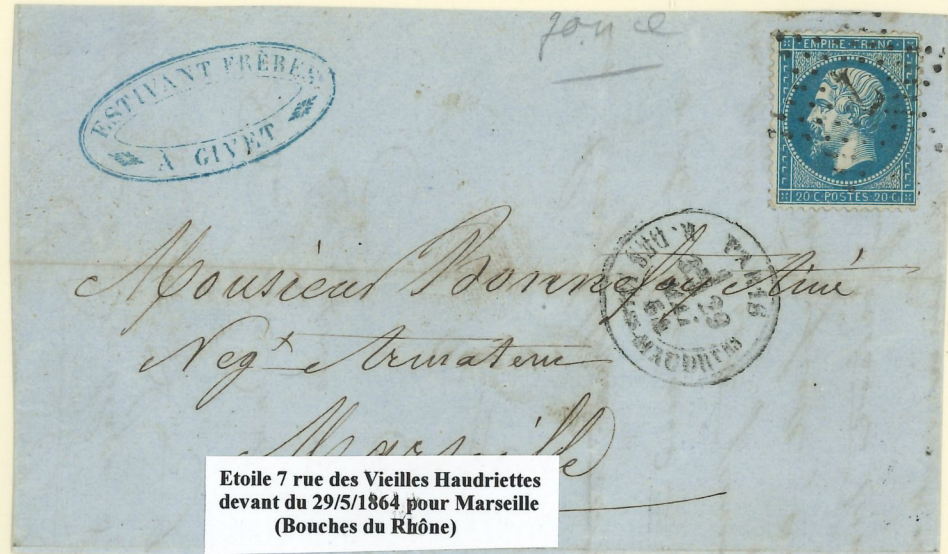 jonc
ESTIVANT FRÈRES
À GIVET
EMPIRE FRANC.
7
20 C POSTES 20 C
PARIS
R. DES VIEILLES HAUDRIETTES
29
MAI
64
Monsieur Bonnefoy Aimé
Negt Armateur
Marseille
Etoile 7 rue des Vieilles Haudriettes
devant du 29/5/1864 pour Marseille
(Bouches du Rhône)